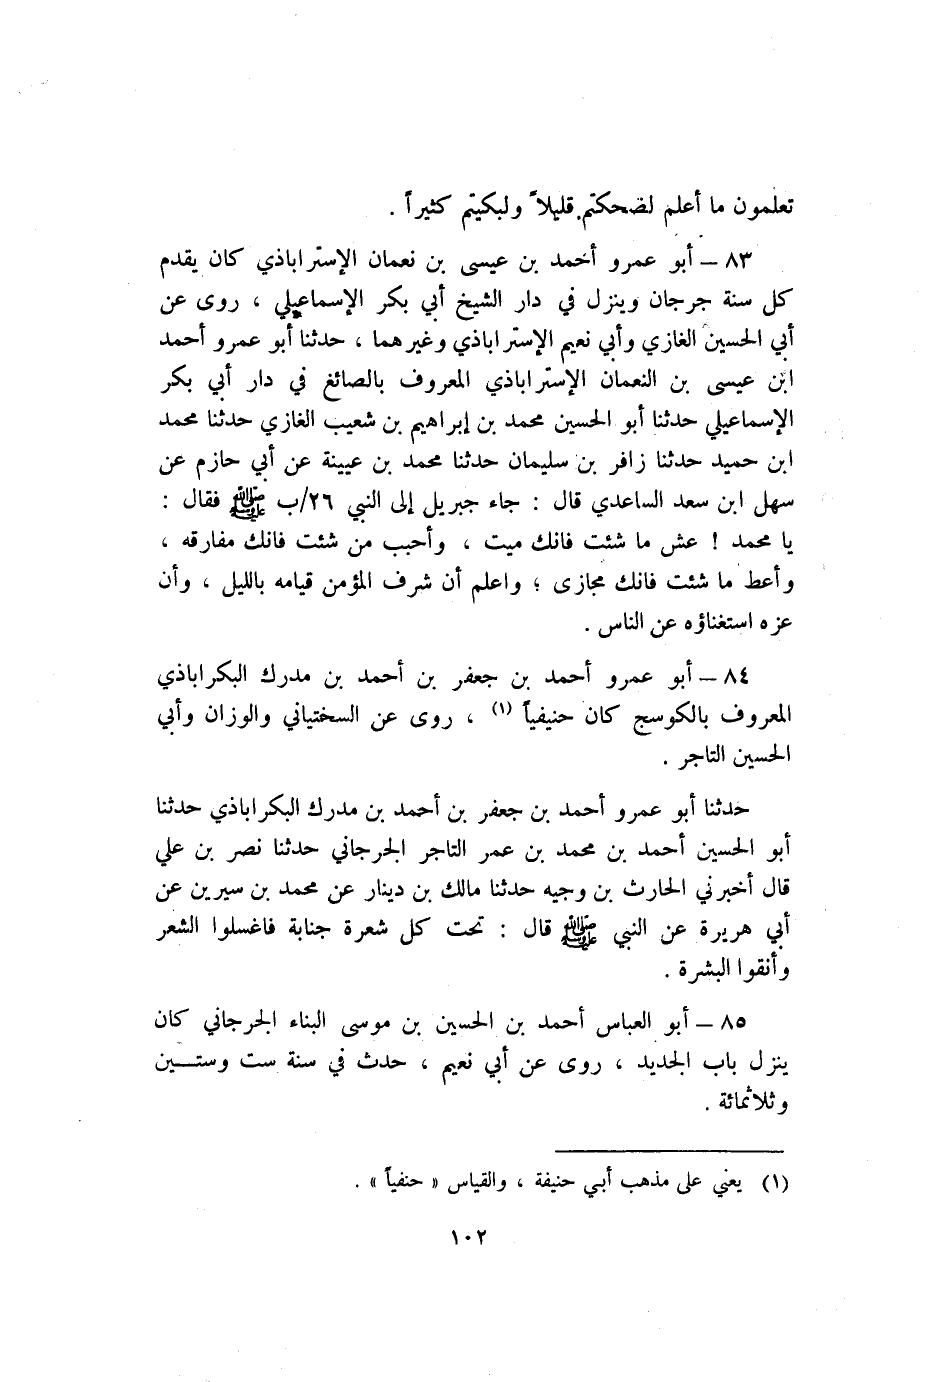 تعلمون ما أعلم لضحكتم قليلاً ولبكيتم كثيراً .
٨٣ – أبو عمرو أحمد بن عيسى بن نعمان الإستراباذي كان يقدم
كل سنة جرجان وينزل في دار الشيخ أبي بكر الإسماعيلي ، روى عن
أبي الحسين الغازي وأبي نعيم الإستراباذي وغيرهما ، حدثنا أبو عمرو أحمد
ابن عيسى بن النعمان الإستراباذي المعروف بالصائغ في دار أبي بكر
الإسماعيلي حدثنا أبو الحسين محمد بن إبراهيم بن شعيب الغازي حدثنا محمد
ابن حميد حدثنا زافر بن سليمان حدثنا محمد بن عيينة عن أبي حازم عن
سهل ابن سعد الساعدي قال : جاء جبريل إلى النبي ٢٦/ب ﷺ فقال :
يا محمد ! عش ما شئت فانك ميت ، وأحبب من شئت فانك مفارقه ،
وأعط ما شئت فانك مجازى ؛ واعلم أن شرف المؤمن قيامه بالليل ، وأن
عزه استغناؤه عن الناس .
٨٤ – أبو عمرو أحمد بن جعفر بن أحمد بن مدرك البكراباذي
المعروف بالكوسج كان حنيفياً (١) ، روى عن السختياني والوزان وأبي
الحسين التاجر .
حدثنا أبو عمرو أحمد بن جعفر بن أحمد بن مدرك البكراباذي حدثنا
أبو الحسين أحمد بن محمد بن عمر التاجر الجرجاني حدثنا نصر بن علي
قال أخبرني الحارث بن وجيه حدثنا مالك بن دينار عن محمد بن سيرين عن
أبي هريرة عن النبي ﷺ قال : تحت كل شعرة جنابة فاغسلوا الشعر
وأنقوا البشرة .
٨٥ – أبو العباس أحمد بن الحسين بن موسى البناء الجرجاني كان
ينزل باب الجديد ، روى عن أبي نعيم ، حدث في سنة ست وستـــين
وثلاثمائة .
(١) يعني على مذهب أبي حنيفة ، والقياس « حنفياً » .
١٠٢